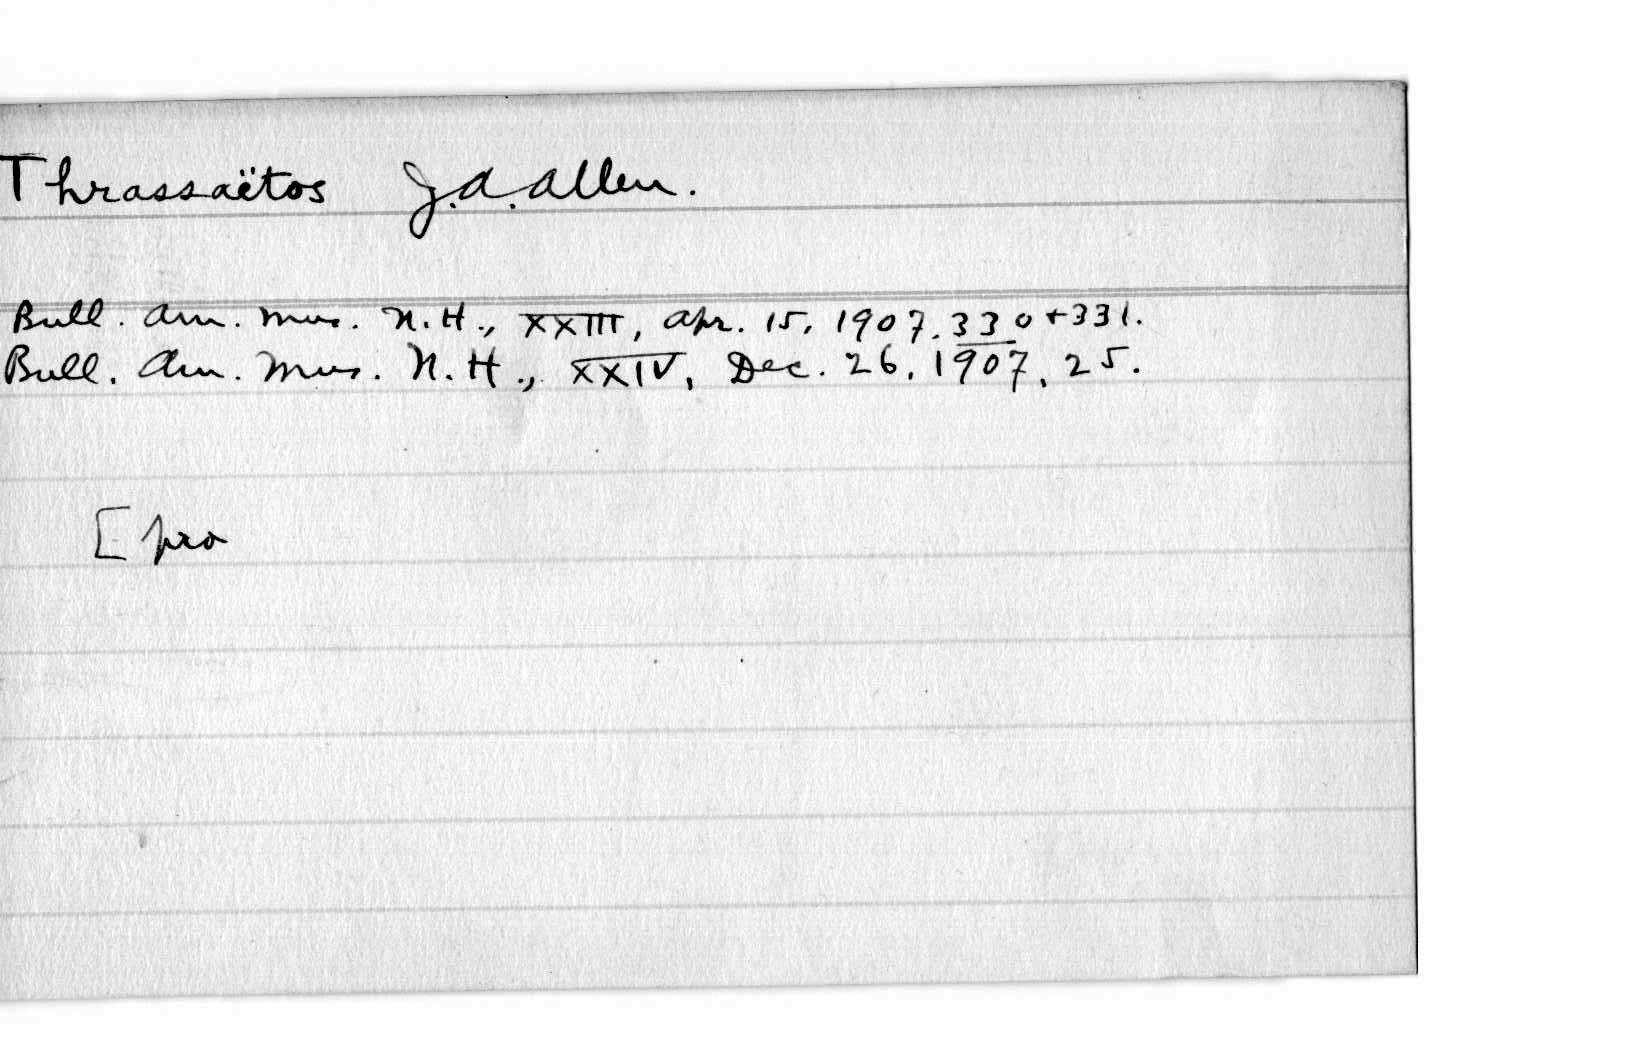 Thrassaëtos J.A. Allen.
Bull. Am. Mus. N.H., XXIII, Apr. 15, 1907. 330+331.
Bull. Am. Mus. N.H., XXIV, Dec. 26, 1907, 25.
[pro